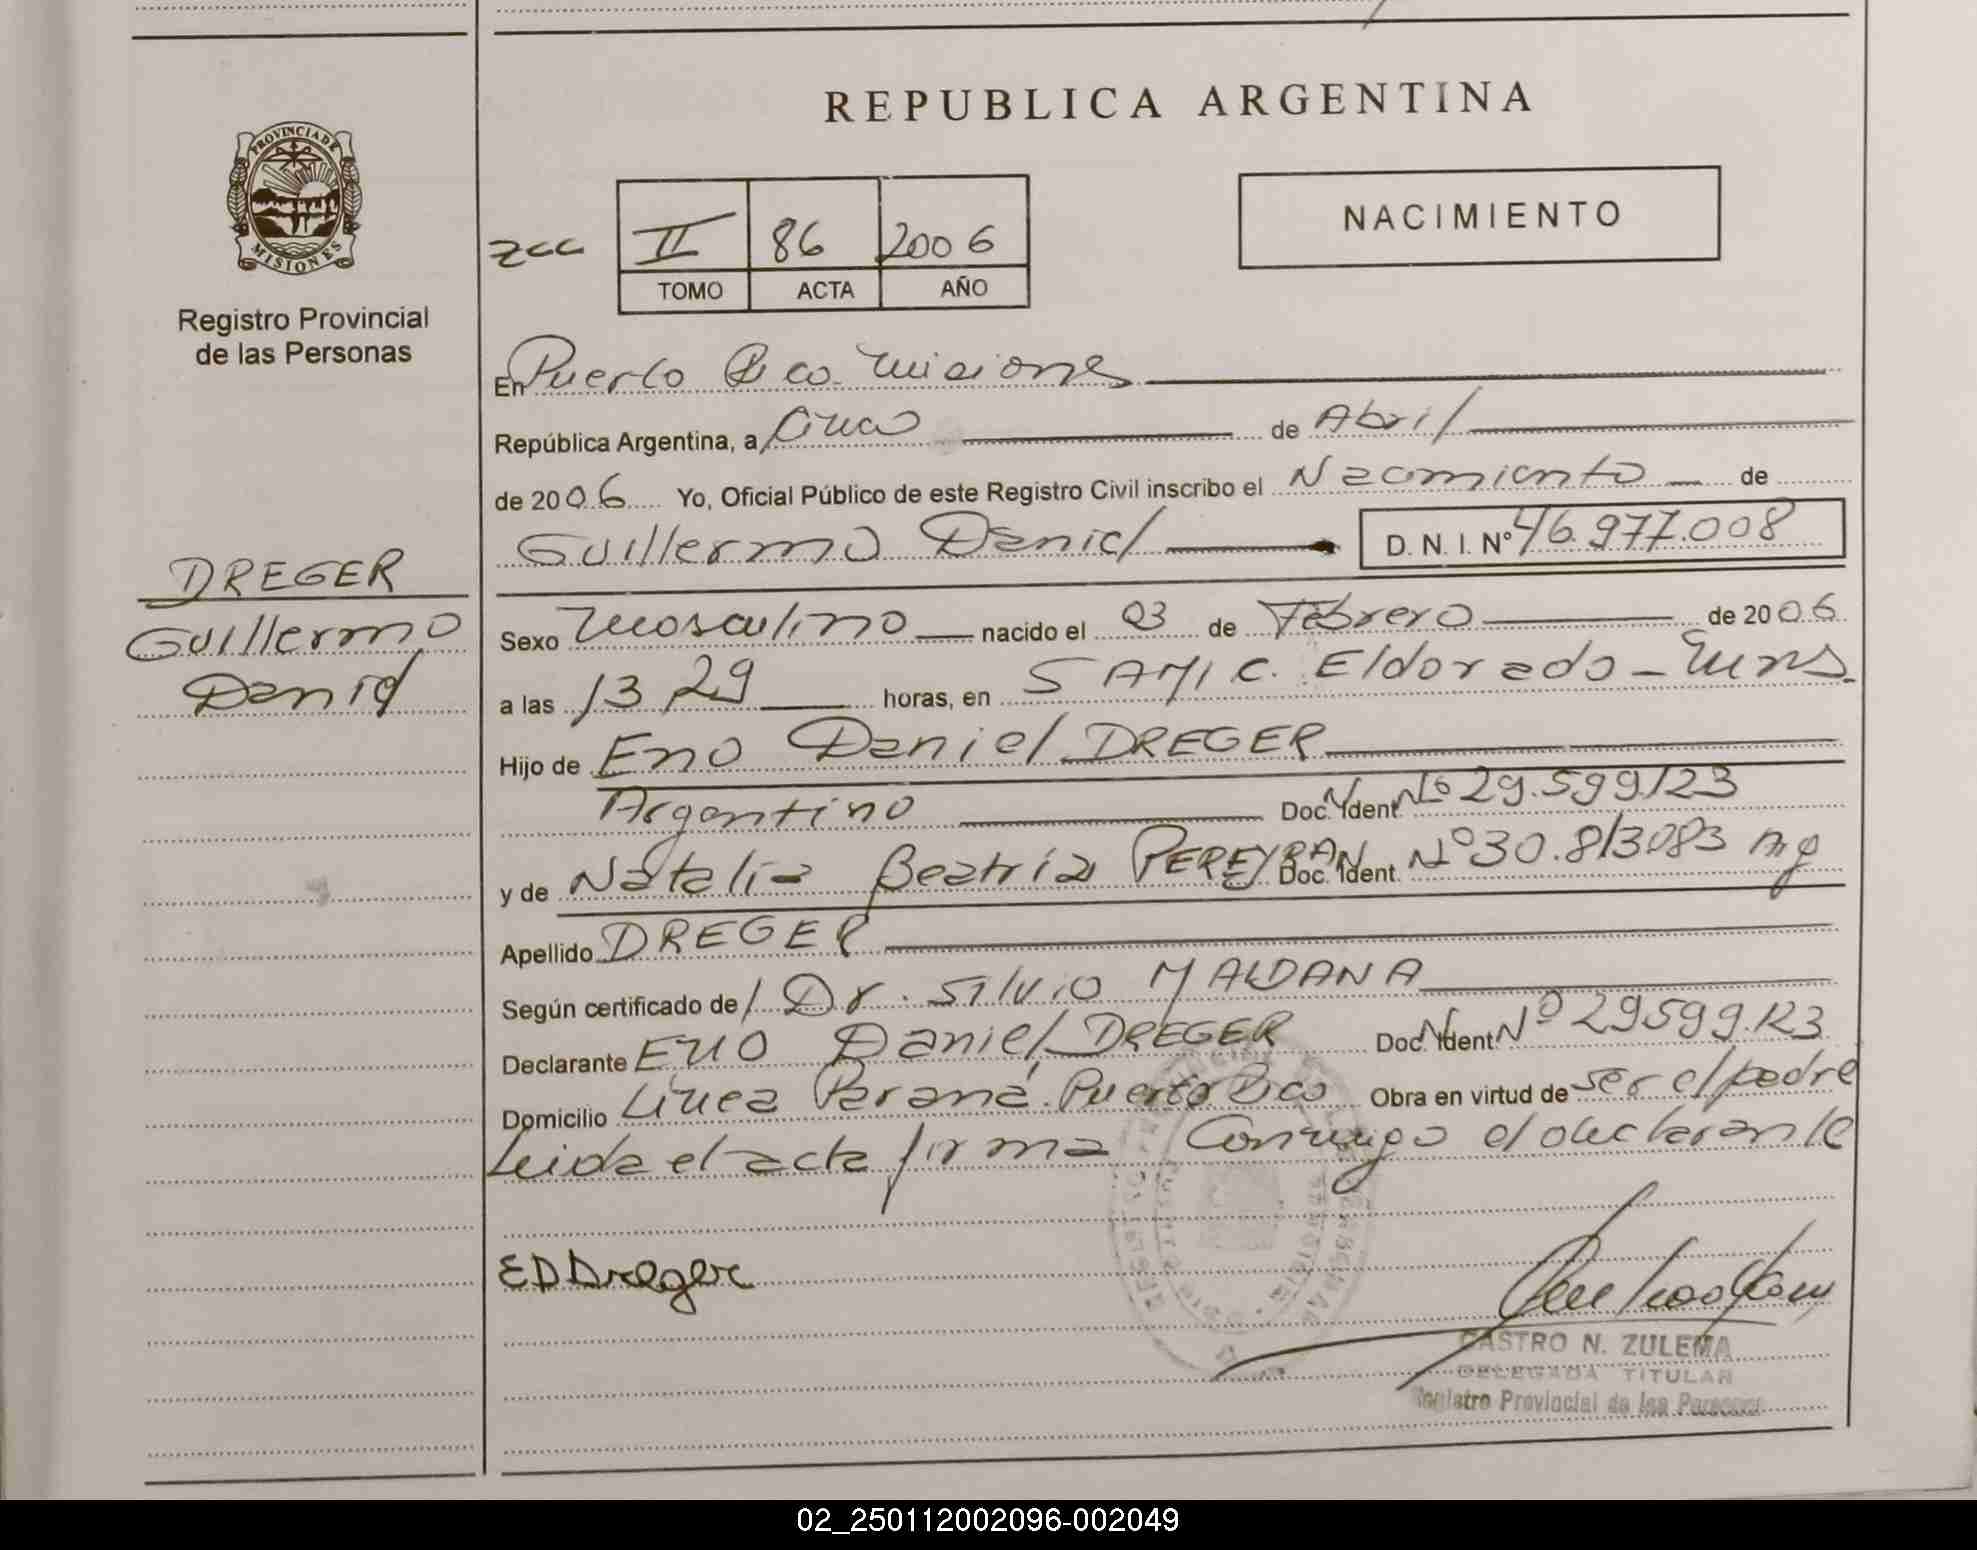 REPUBLICA ARGENTINA
PROVINCIA DE
MISIONES
Registro Provincial
de las Personas
zcc
II 86 2006
TOMO ACTA AÑO
NACIMIENTO
En Puerto Rico Misiones
República Argentina, a Cinco de Abril
de 2006 Yo, Oficial Público de este Registro Civil inscribo el Nacimiento de
Guillermo Daniel D. N. I. Nº 46.977.008
DREGER
Guillermo
Daniel
Sexo Masculino nacido el 03 de Febrero de 2006
a las 13,29 horas, en SAMIC. Eldorado - Mns.
Hijo de Eno Daniel DREGER
Argentino Doc. N. Ident. Nº 29.599.123
y de Natalia Beatriz PEREYRA Doc. N. Ident. Nº 30.813083 Arg
Apellido DREGER
Según certificado de Dr. Silvio MALDANA
Declarante Eno Daniel DREGER Doc. N. Ident Nº 29599.123
Domicilio Línea Paraná. Puerto Rico Obra en virtud de ser el padre
Leida el acta firma Conmigo el declarante
EDDreger
CASTRO N. ZULEMA
DELEGADA TITULAR
Registro Provincial de las Personas
02_250112002096-002049